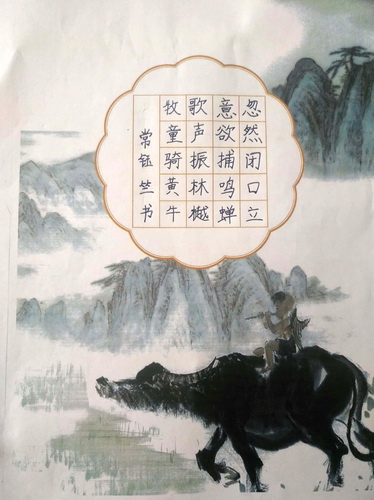 牧童骑黄牛
歌声振林樾
意欲捕鸣蝉
忽然闭口立
常钰竺书